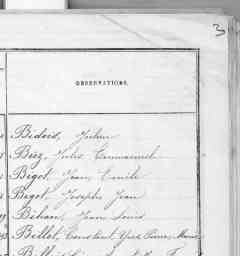 3
OBSERVATIONS.
Bidois, Julien
Biez, Jules Emmanuel
Bigot, Jean Emile
Bigot, Joseph Jean
Bihan, Jean Louis
Billet, Constant Yves Pierre Marie